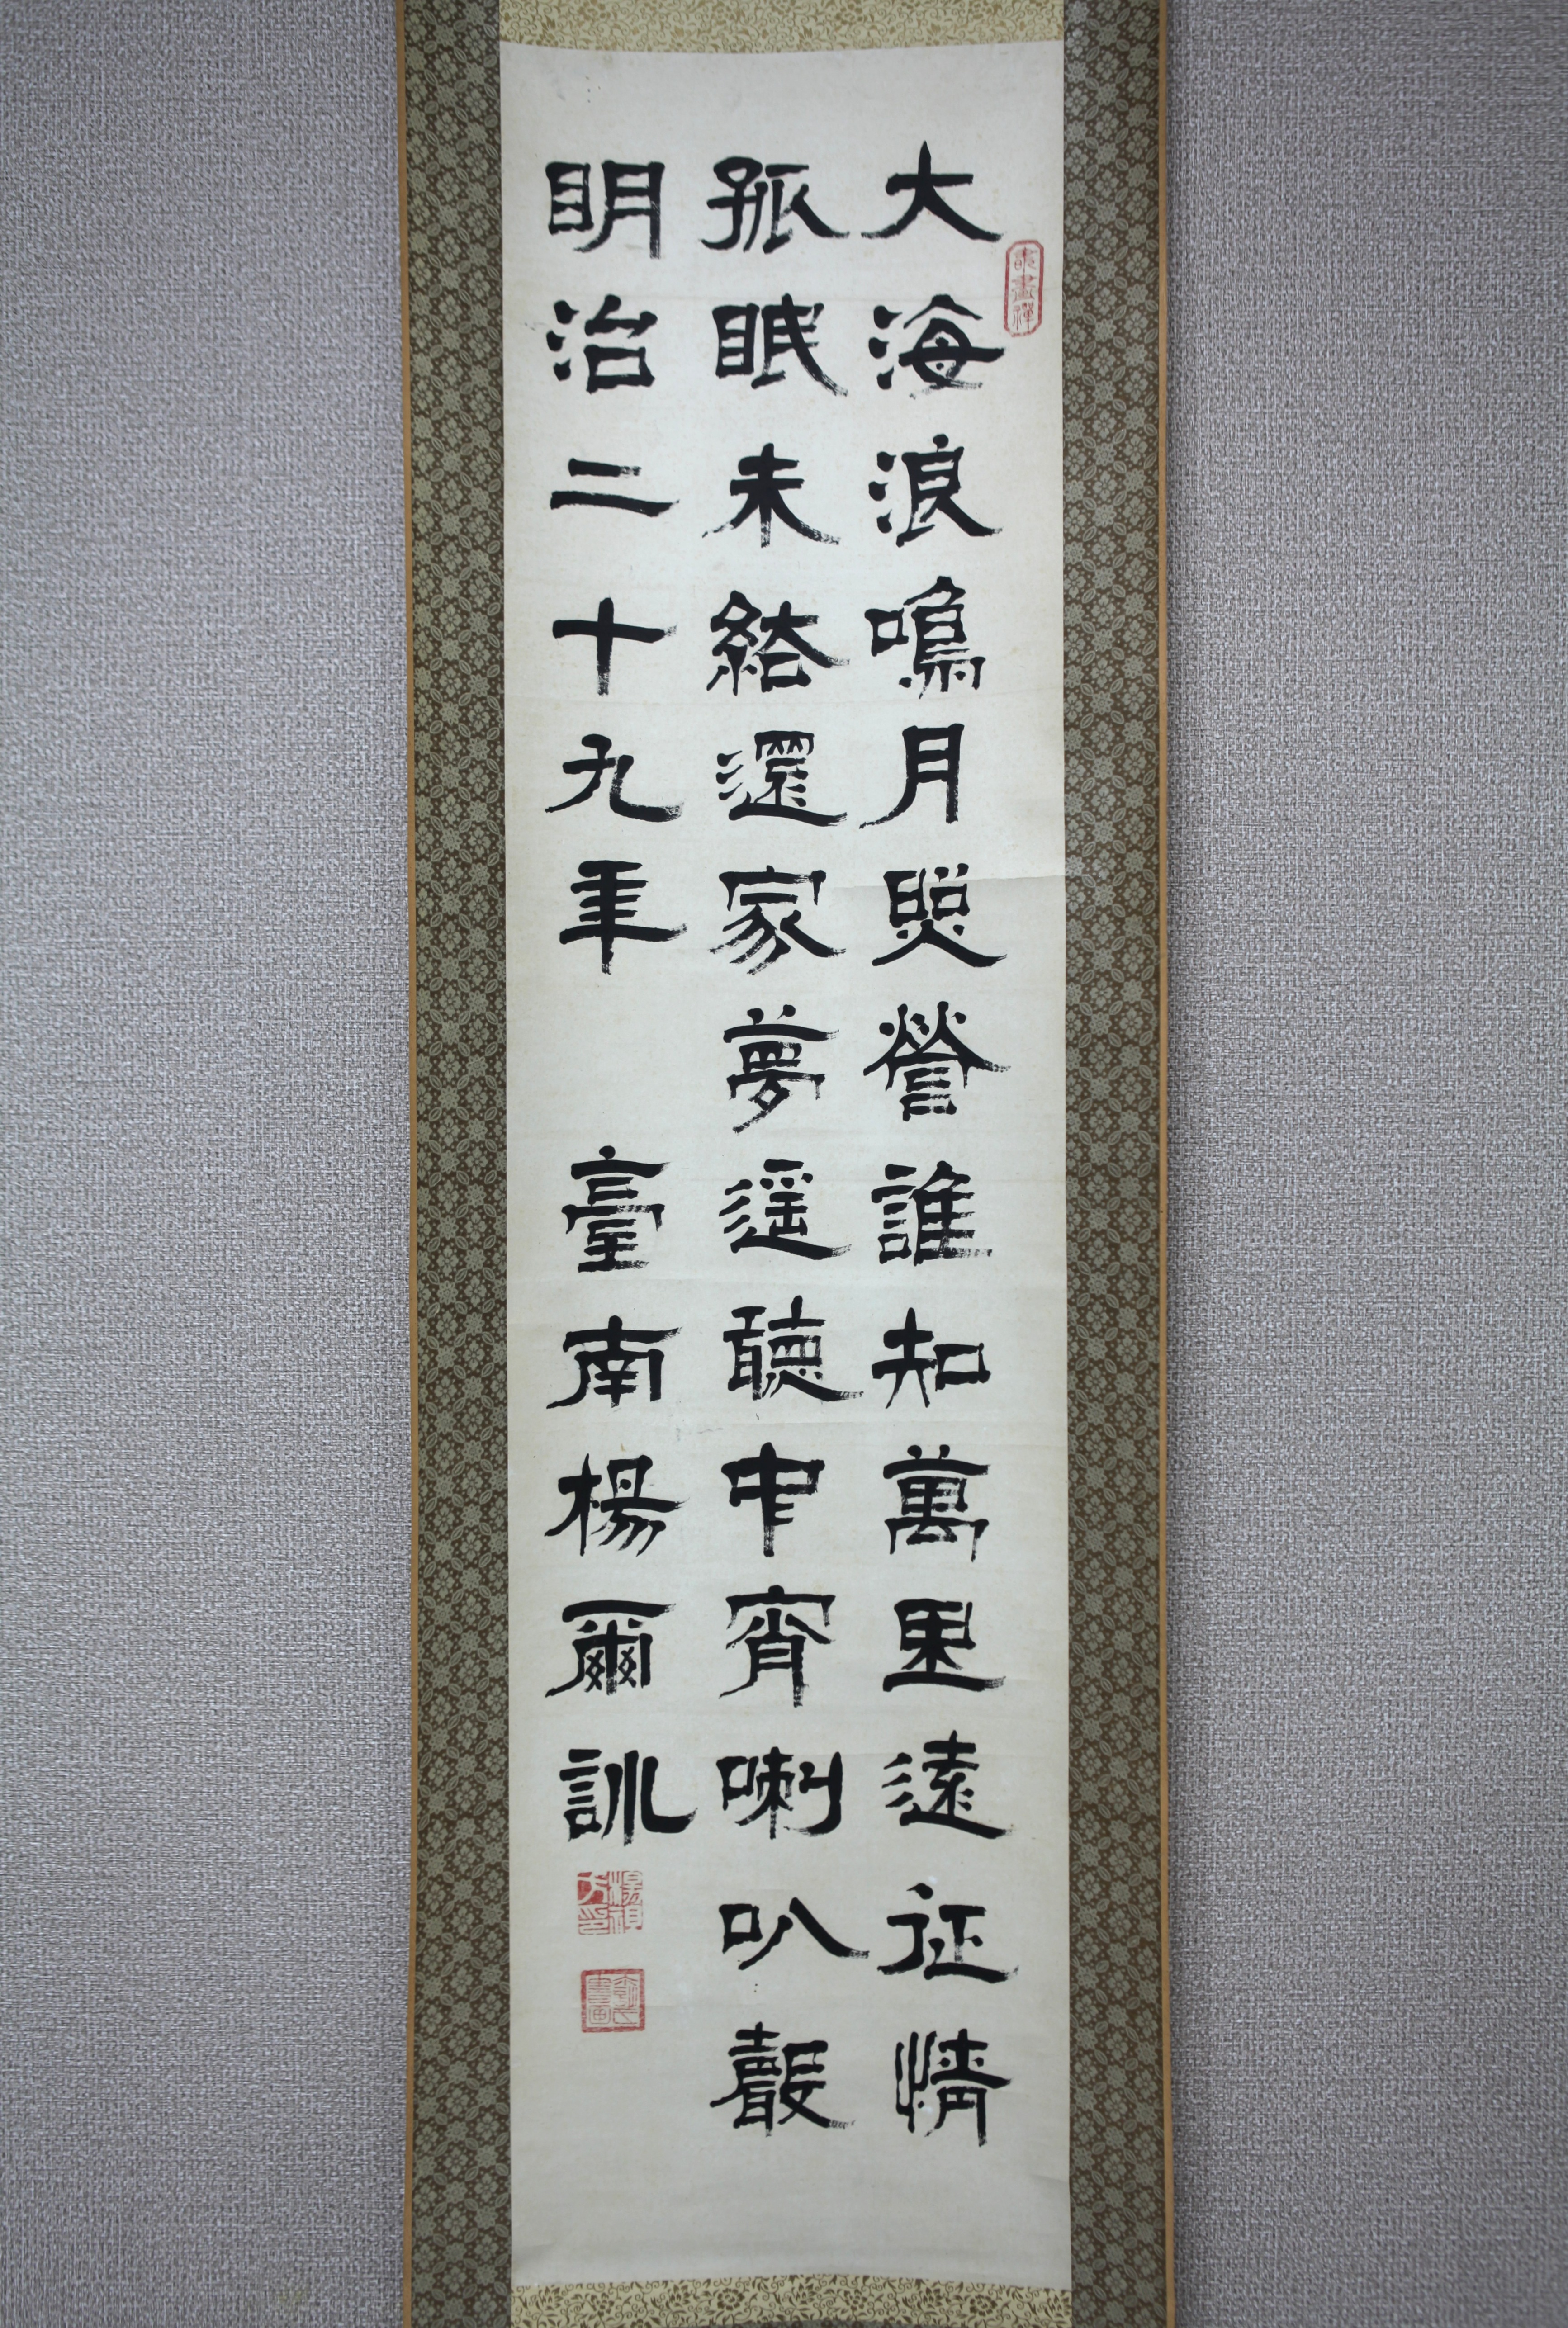 大海浪鳴月照營誰知萬里遠征情
孤眠未結還家夢遥聽中宵喇叭聲
明治二十九年 臺南楊爾訓
書畫禪